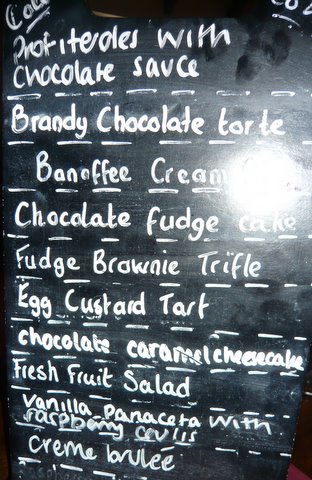 Cold
Profiteroles with
Chocolate sauce
Brandy Chocolate torte
Banoffee Cream
Chocolate fudge cake
Fudge Brownie Trifle
Egg Custard Tart
chocolate caramel cheesecake
Fresh Fruit Salad
vanilla panaceta with
raspberry coulis
creme brulee